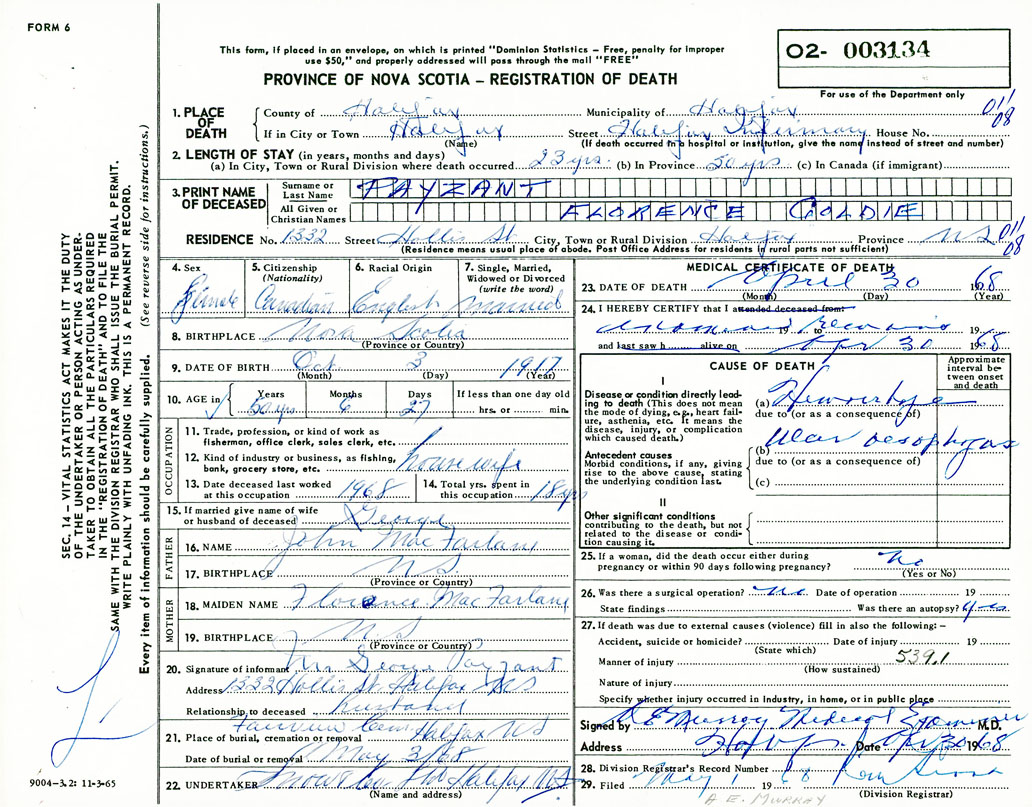 FORM 6
This form, if placed in an envelope, on which is printed "Dominion Statistics – Free, penalty for improper
use $50," and properly addressed will pass through the mail "FREE"
PROVINCE OF NOVA SCOTIA – REGISTRATION OF DEATH
O2- 003134
For use of the Department only
SEC. 14 – VITAL STATISTICS ACT MAKES IT THE DUTY
OF THE UNDERTAKER OR PERSON ACTING AS UNDER-
TAKER TO OBTAIN ALL THE PARTICULARS REQUIRED
IN THE "REGISTRATION OF DEATH" AND TO FILE THE
SAME WITH THE DIVISION REGISTRAR WHO SHALL ISSUE THE BURIAL PERMIT.
WRITE PLAINLY WITH UNFADING INK. THIS IS A PERMANENT RECORD.
Every item of information should be carefully supplied. (See reverse side for instructions.)
1. PLACE OF DEATH
County of Halifax Municipality of Halifax
011/08
If in City or Town Halifax Street Halifax Infirmary House No.
(Name) (If death occurred in a hospital or institution, give the name instead of street and number)
2. LENGTH OF STAY (in years, months and days)
(a) In City, Town or Rural Division where death occurred 23 yrs. (b) In Province 50 yrs (c) In Canada (if immigrant)
3. PRINT NAME OF DECEASED
Surname or Last Name PAYZANT
All Given or Christian Names FLORENCE GOLDIE
RESIDENCE No. 1332 Street Hollis St. City, Town or Rural Division Halifax Province NS
011/08
(Residence means usual place of abode. Post Office Address for residents in rural parts not sufficient)
4. Sex Female
5. Citizenship (Nationality) Canadian
6. Racial Origin English
7. Single, Married, Widowed or Divorced (write the word) married
8. BIRTHPLACE Nova Scotia
(Province or Country)
9. DATE OF BIRTH Oct 3 1917
(Month) (Day) (Year)
10. AGE in Years 50 yrs Months 6 Days 27 If less than one day old hrs. or min.
OCCUPATION
11. Trade, profession, or kind of work as
fisherman, office clerk, sales clerk, etc.
12. Kind of industry or business, as fishing,
bank, grocery store, etc. housewife
13. Date deceased last worked
at this occupation 1968
14. Total yrs. spent in
this occupation 18 yrs
15. If married give name of wife
or husband of deceased George
FATHER
16. NAME John MacFarlane
17. BIRTHPLACE NS
(Province or Country)
MOTHER
18. MAIDEN NAME Florence MacFarlane
19. BIRTHPLACE NS
(Province or Country)
20. Signature of informant Mr George Payzant
Address 1332 Hollis St. Halifax NS
Relationship to deceased husband
21. Place of burial, cremation or removal Fairview Cem Halifax NS
Date of burial or removal May 3/68
22. UNDERTAKER Snow Halifax NS
(Name and address)
9004–3.2: 11-3-65
MEDICAL CERTIFICATE OF DEATH
23. DATE OF DEATH April 30 1968
(Month) (Day) (Year)
24. I HEREBY CERTIFY that I attended deceased from:
19 to 19
and last saw h alive on Apr 30 1968
CAUSE OF DEATH
Approximate interval between onset and death
I
Disease or condition directly lead-
ing to death (This does not mean
the mode of dying, e.g., heart fail-
ure, asthenia, etc. It means the
disease, injury, or complication
which caused death.)
(a) Hemorrhage
due to (or as a consequence of)
Ulcer oesophagus
Antecedent causes
Morbid conditions, if any, giving
rise to the above cause, stating
the underlying condition last.
(b)
due to (or as a consequence of)
(c)
II
Other significant conditions
contributing to the death, but not
related to the disease or condi-
tion causing it.
25. If a woman, did the death occur either during
pregnancy or within 90 days following pregnancy? No
(Yes or No)
26. Was there a surgical operation? No Date of operation 19
State findings Was there an autopsy? Yes
27. If death was due to external causes (violence) fill in also the following: –
Accident, suicide or homicide? Date of injury 19
(State which)
Manner of injury 539.1
(How sustained)
Nature of injury
Specify whether injury occurred in Industry, in home, or in public place
Signed by A E Murray Medical Examiner M.D.
Address Halifax Date Apr 30 1968
28. Division Registrar's Record Number
29. Filed May 1 1968
(Division Registrar)
A. E. MURRAY